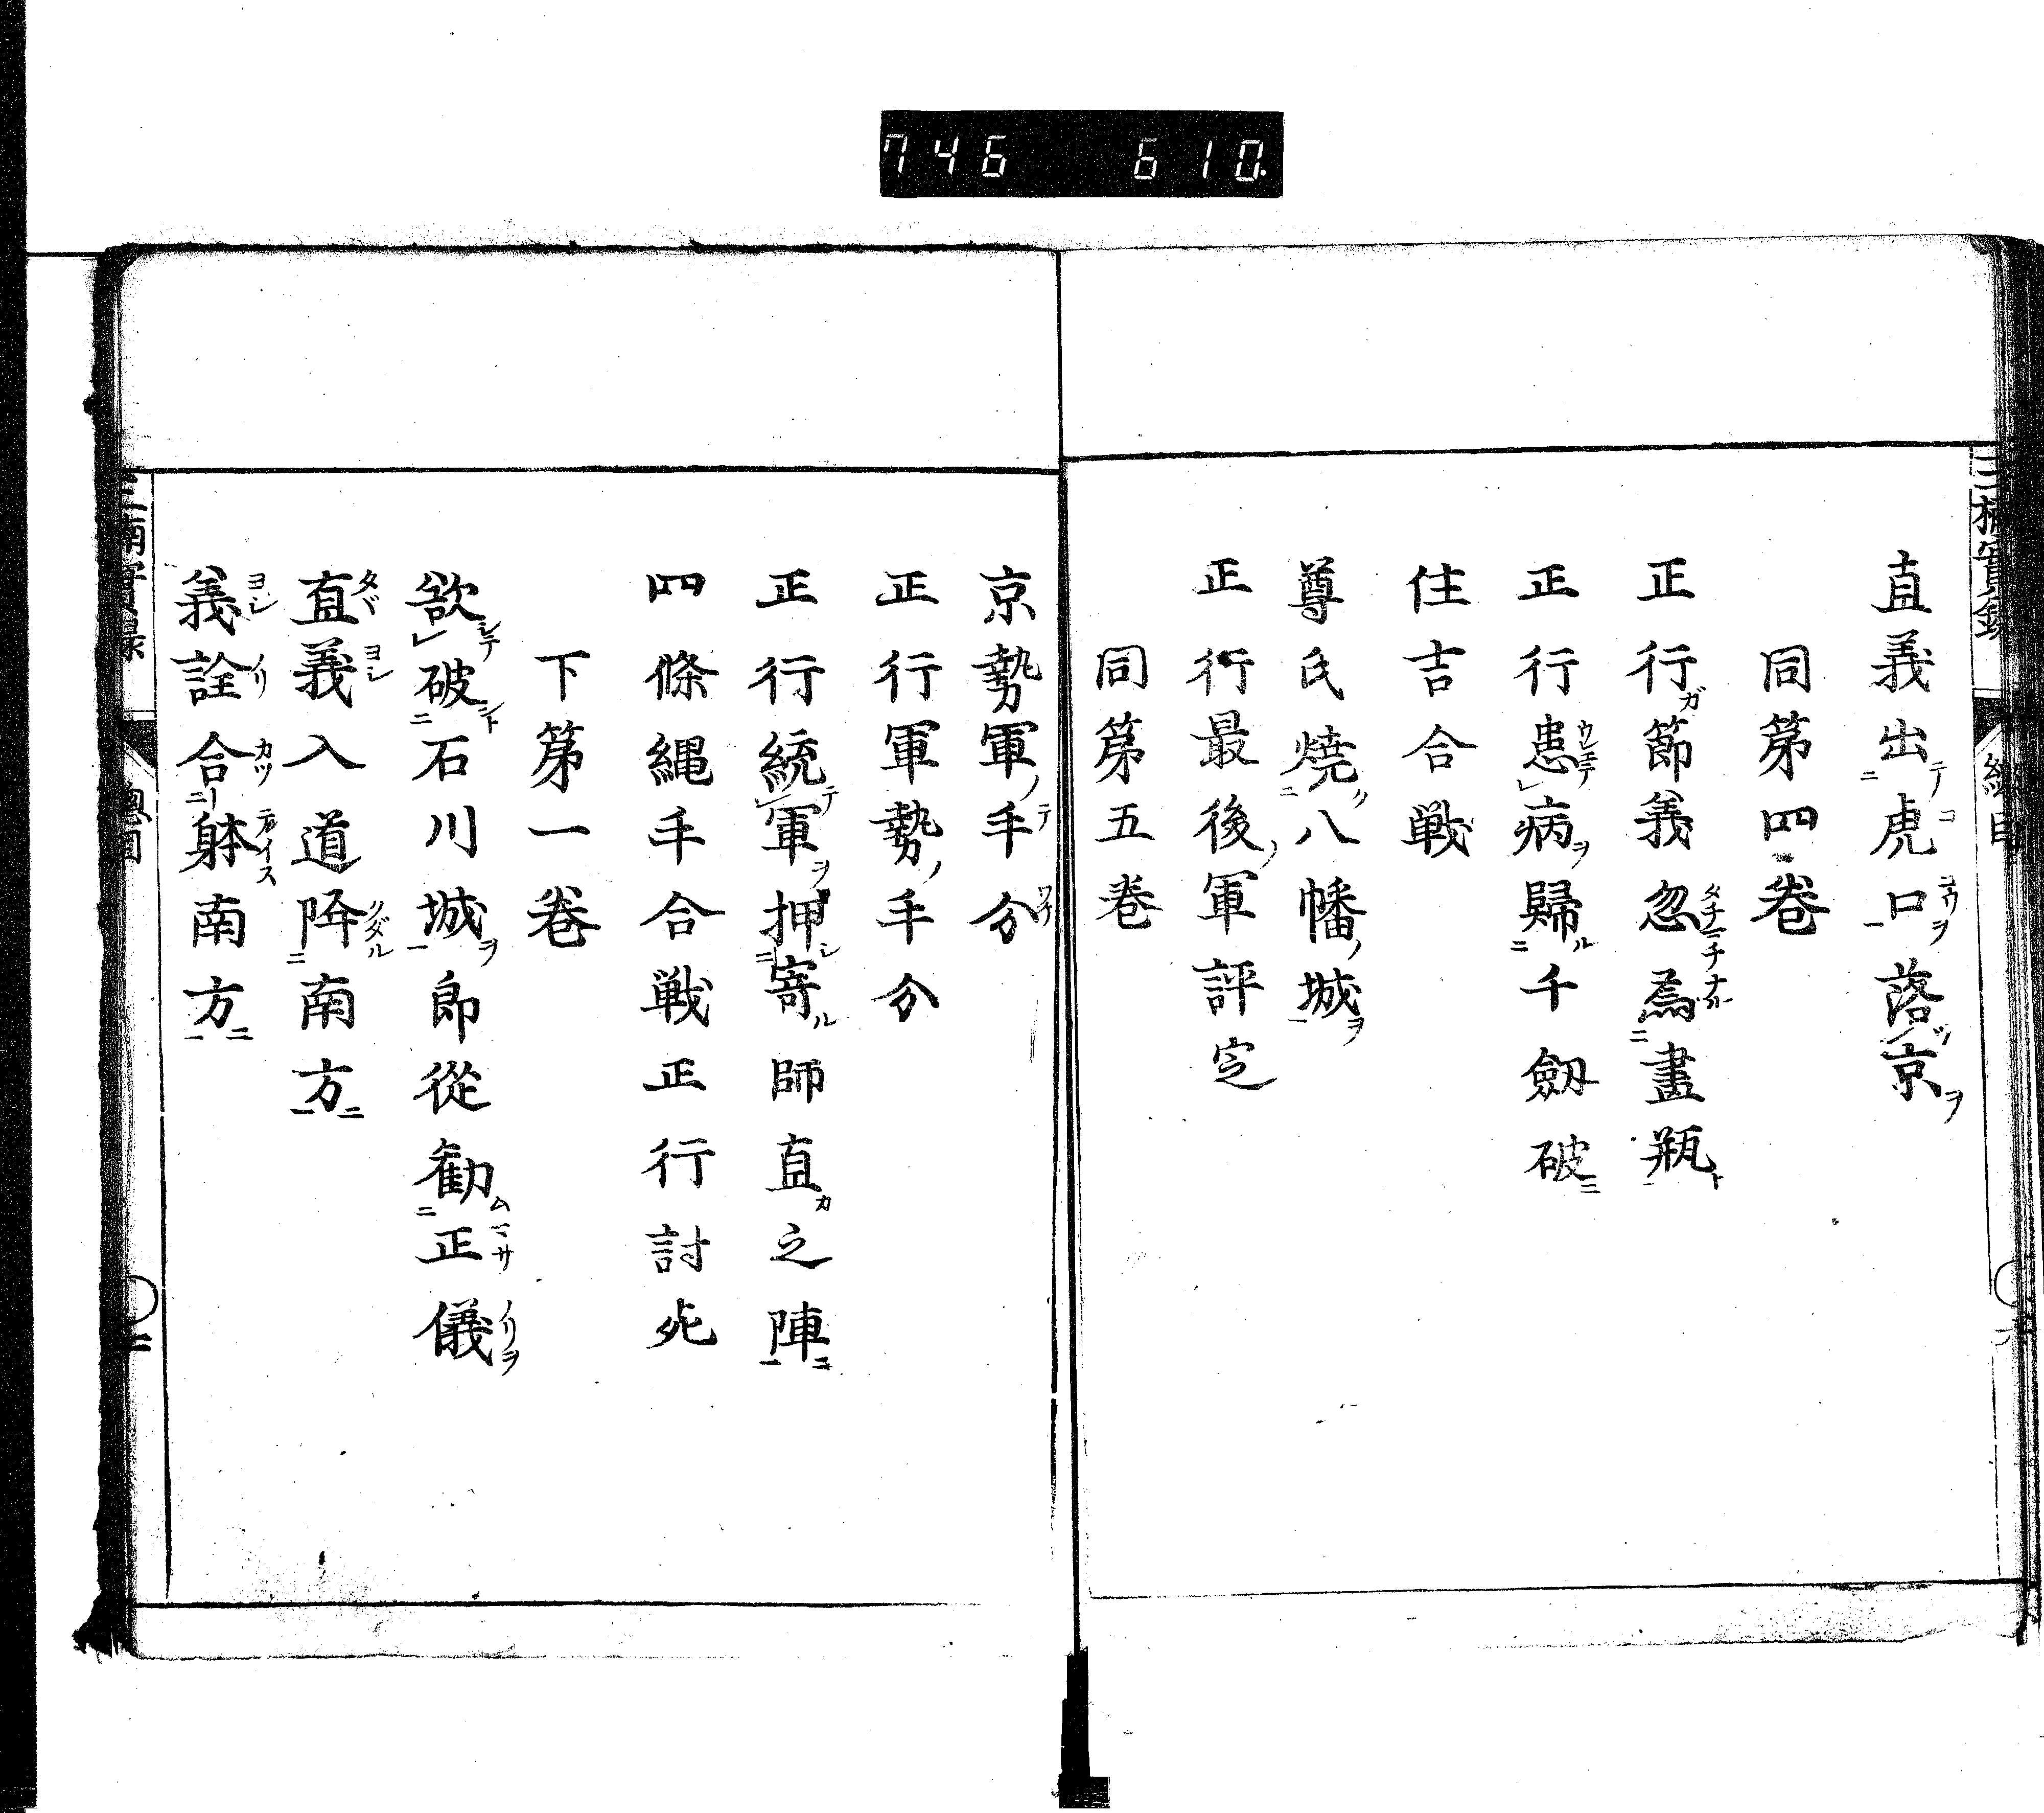 746 610.
直義出虎口落京
同第四巻
正行節義忽為畫瓶
正行患病歸千劔破
住吉合戦
尊氏焼八幡城
正行最後軍評定
同第五巻
京勢軍手分
正行軍勢手分
正行統軍押寄師直之陣
四條縄手合戦正行討死
下第一巻
欲破石川城郎從勸正儀
直義入道降南方
義詮合躰南方